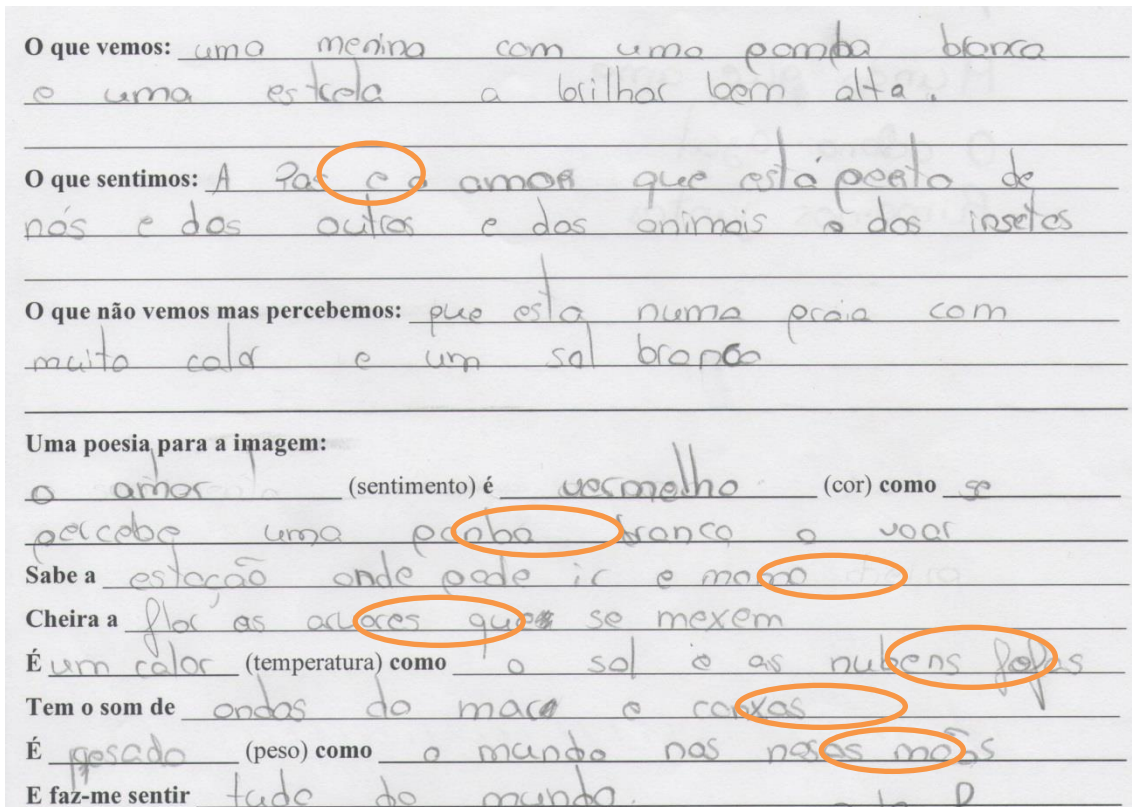 O que vemos: uma menina com uma pomba branca
e uma estrela a brilhar bem alta.
O que sentimos: A Pas e o amor que está perto de
nós e dos outros e dos animais e dos insetos
O que não vemos mas percebemos: que está numa praia com
muito calor e um sol branco
Uma poesia para a imagem:
o amor (sentimento) é vermelho (cor) como se
percebe uma panba branca a voar
Sabe a estação onde pode ir e
Cheira a flor as arvores que se mexem
É um calor (temperatura) como o sol e as nubens fofas
Tem o som de ondas do mar e conxas
É pesado (peso) como o mundo nas nosas mãos
E faz-me sentir tudo do mundo.